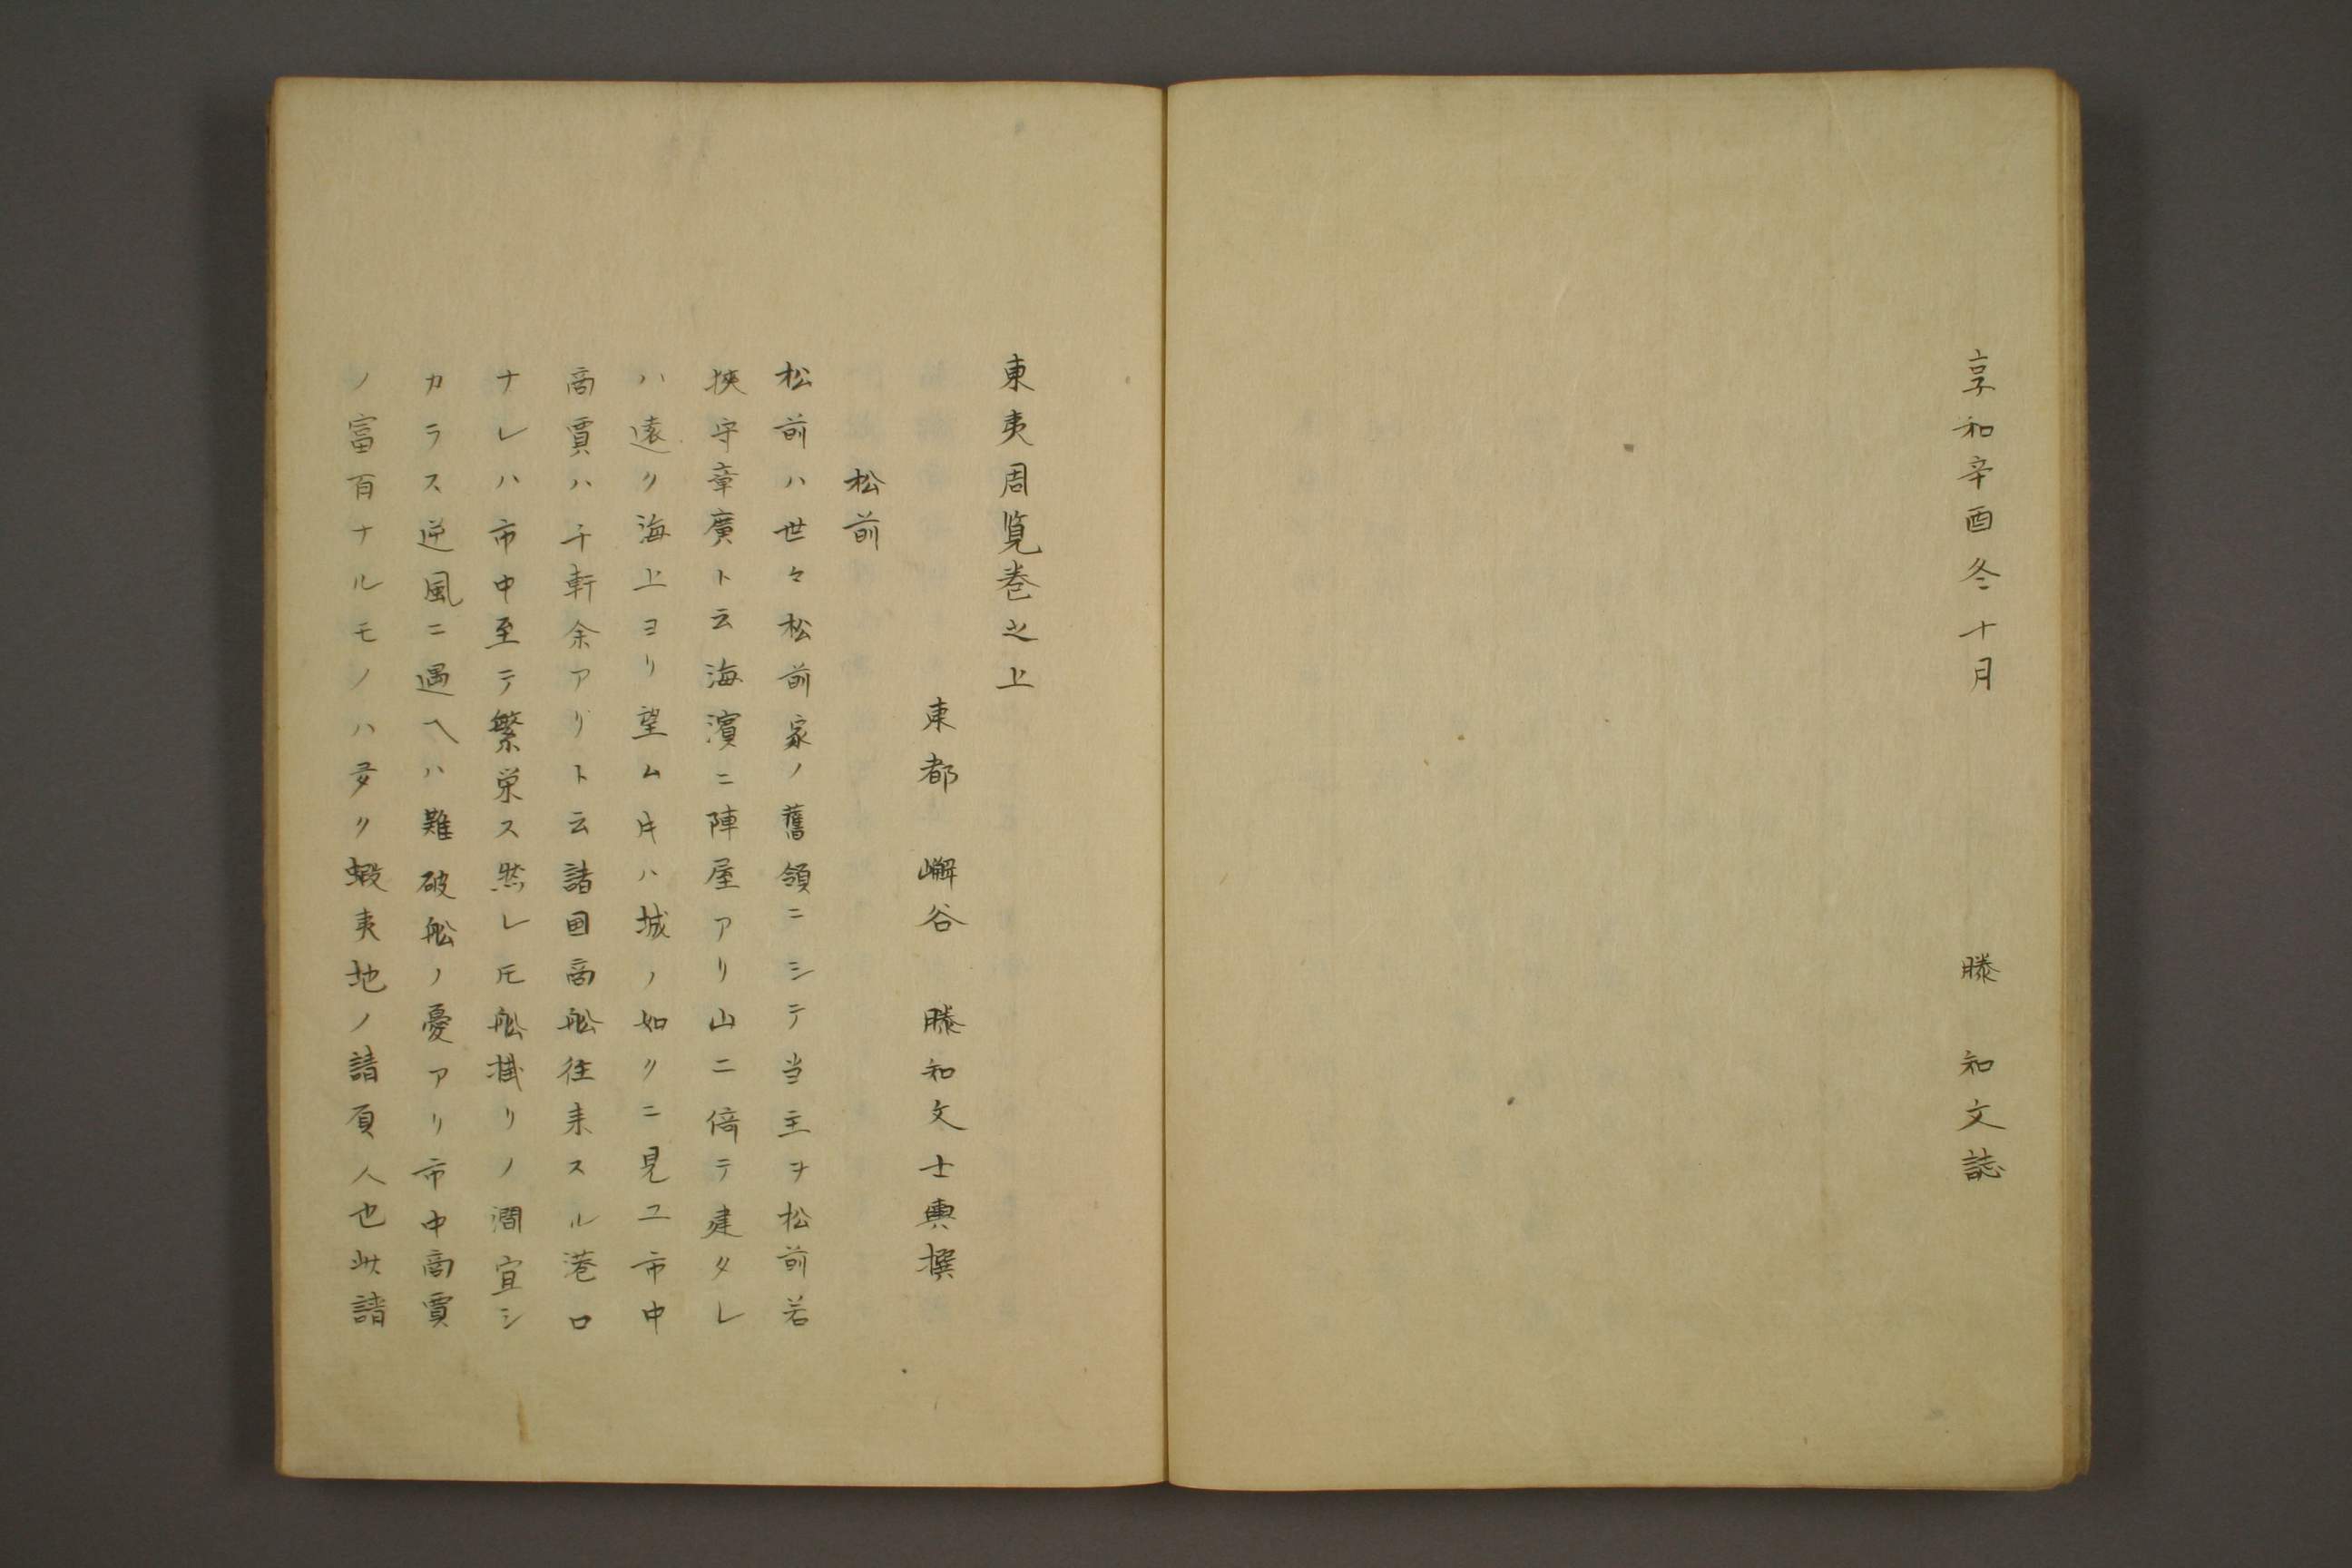 享和辛酉冬十月　滕　知文誌
東夷周覧巻之上
東都　嶰谷　滕知文士輿撰
松前
松前ハ世々松前家ノ舊領ニシテ当主ヲ松前若
挾守章廣ト云海濱ニ陣屋アリ山ニ倚テ建タレ
ハ遠ク海上ヨリ望ム𪜈ハ城ノ如クニ見ユ市中
商賈ハ千軒余アリト云諸国商舩往来スル港口
ナレハ市中至テ繁栄ス然レ𪜈舩掛リノ澗宜シ
カラス逆風ニ遇ヘハ難破舩ノ憂アリ市中商賈
ノ富百ナルモノハ多ク蝦夷地ノ請負人也此請